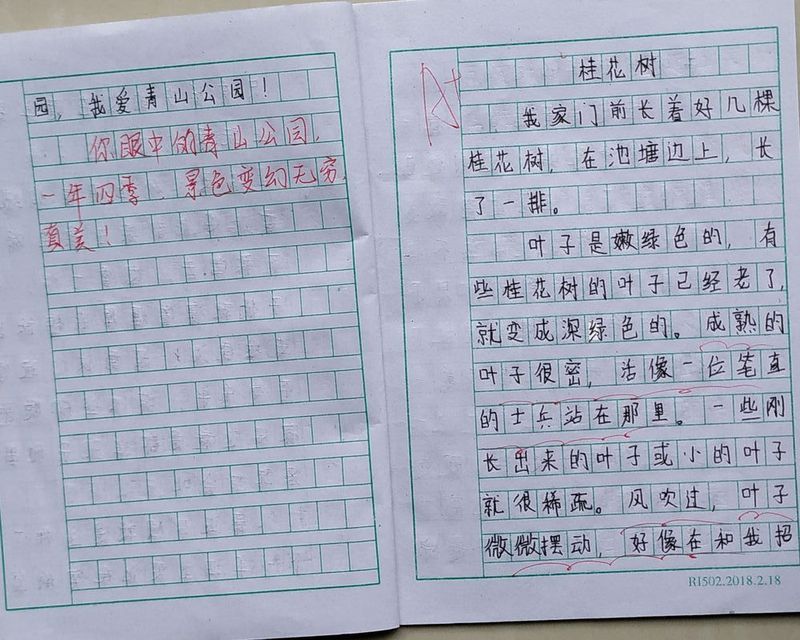 园，我爱青山公园！
你眼中的青山公园，
一年四季，景色变幻无穷，
真美！
A+
桂花树
我家门前长着好几棵
桂花树，在池塘边上，长
了一排。
叶子是嫩绿色的，有
些桂花树的叶子已经老了，
就变成深绿色的。成熟的
叶子很密，活像一位笔直
的士兵站在那里。一些刚
长出来的叶子或小的叶子
就很稀疏。风吹过，叶子
微微摆动，好像在和我招
RI502.2018.2.18